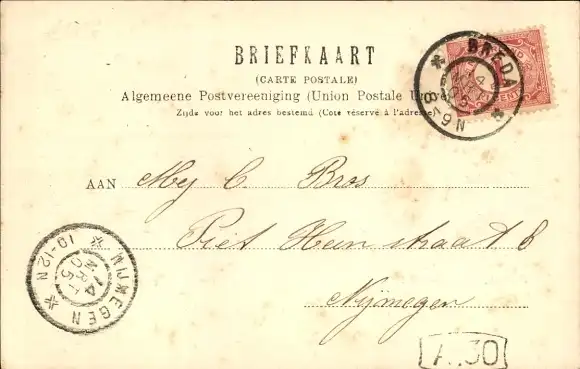 BRIEFKAART
(CARTE POSTALE)
Algemeene Postvereeniging (Union Postale
Zijde voor het adres bestemd (Côté réservé à l'adresse)
BREDA
14 MRT 05
8-9 N
CENT
AAN Mej C. Bros
Piet Heinstraat 8
Nijmegen
NIJMEGEN
14 MRT 05
10-12N
A.30